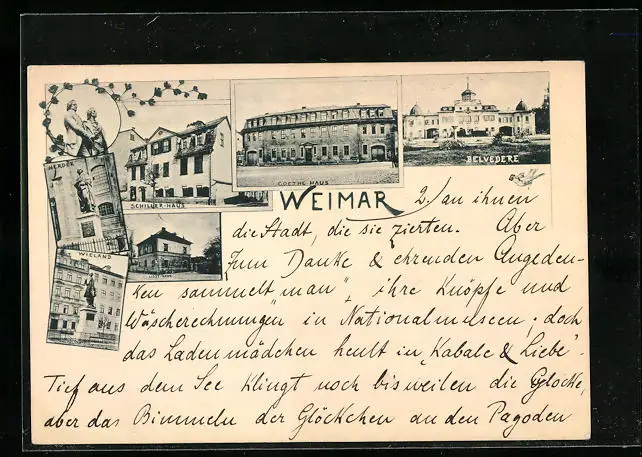 HERDER
SCHILLER-HAUS
GOETHE-HAUS
BELVEDERE
WIELAND
LISZT-HAUS
WEIMAR
2./ an ihnen
die Stadt, die sie zierten. Aber
zum Danke & ehrenden Angeden-
ken sammelt "man" ihre Knöpfe und
Wäscherechnungen in Nationalmuseen; doch
das Ladenmädchen heult in "Kabale & Liebe".
Tief aus dem See klingt noch bisweilen die Glocke,
aber das Bimmeln der Glöckchen an den Pagoden